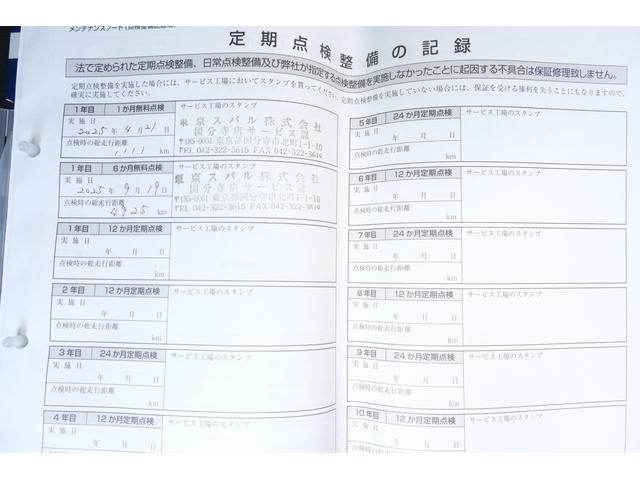 メンテナンスノート(点検整備記録
定期点検整備の記録
法で定められた定期点検整備、日常点検整備及び弊社が指定する点検整備を実施しなかったことに起因する不具合は保証修理致しません。
定期点検整備を実施した場合には、サービス工場においてスタンプを貰ってください。定期点検整備を実施していない場合には、保証を受ける権利を失うことにもなりますので、
確実に実施してください。
1年目 1か月無料点検 サービス工場のスタンプ
実施日
2025年4月21日
点検時の総走行距離
1,111 km
東京スバル株式会社
国分寺店サービス課
〒185-0001 東京都国分寺市北町1-1-10
TEL 042-322-3615 FAX 042-322-3619
1年目 6か月無料点検 サービス工場のスタンプ
実施日
2025年9月19日
点検時の総走行距離
4,925 km
東京スバル株式会社
国分寺店サービス課
〒185-0001 東京都国分寺市北町1-1-10
TEL 042-322-3615 FAX 042-322-3619
1年目 12か月定期点検 サービス工場のスタンプ
実施日
年 月 日
点検時の総走行距離
km
2年目 12か月定期点検 サービス工場のスタンプ
実施日
年 月 日
点検時の総走行距離
km
3年目 24か月定期点検 サービス工場のスタンプ
実施日
年 月 日
点検時の総走行距離
km
4年目 12か月定期点検 サービス工場のスタンプ
実施日
年 月 日
5年目 24か月定期点検 サービス工場のスタンプ
実施日
年 月 日
点検時の総走行距離
km
6年目 12か月定期点検 サービス工場のスタンプ
実施日
年 月 日
点検時の総走行距離
km
7年目 24か月定期点検 サービス工場のスタンプ
実施日
年 月 日
点検時の総走行距離
km
8年目 12か月定期点検 サービス工場のスタンプ
実施日
年 月 日
点検時の総走行距離
km
9年目 24か月定期点検 サービス工場のスタンプ
実施日
年 月 日
点検時の総走行距離
km
10年目 12か月定期点検 サービス工場のスタンプ
実施日
年 月 日